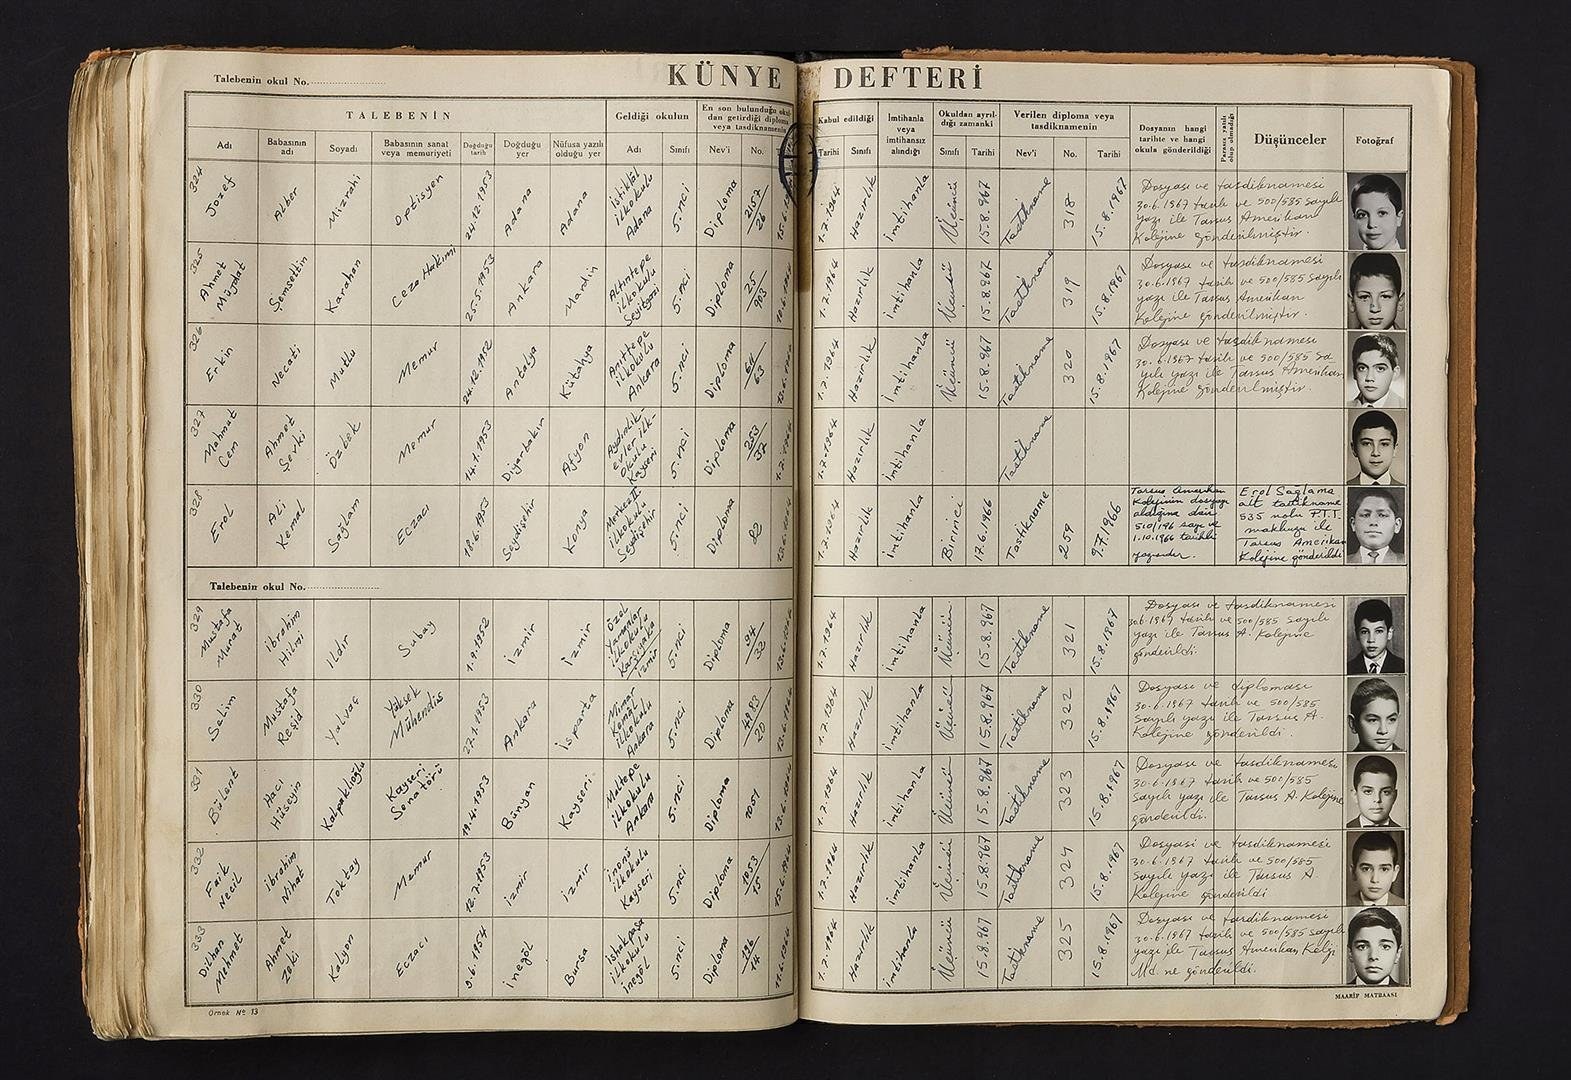 Talebenin okul No.
KÜNYE DEFTERİ
TALEBENİN
Geldiği okulun
En son bulunduğu okul-
dan getirdiği diploma
veya tasdiknamenin
Kabul edildiği
İmtihanla
veya
imtihansız
alındığı
Okuldan ayrıl-
dığı zamanki
Verilen diploma veya
tasdiknamenin
Dosyanın hangi
tarihte ve hangi
okula gönderildiği
Parasız yatılı
olup olmadığı
Düşünceler
Fotoğraf
Adı
Babasının
adı
Soyadı
Babasının sanat
veya memuriyeti
Doğduğu
tarih
Doğduğu
yer
Nüfusa yazılı
olduğu yer
Adı
Sınıfı
Nev'i
No.
Tarihi
Sınıfı
Sınıfı
Tarihi
Nev'i
No.
Tarihi
324
Jozef
Alber
Mizrahi
Optisyen
24.12.1953
Adana
Adana
İstiklâl
ilkokulu
Adana
5.nci
Diploma
2157/26
1.7.1964
Hazırlık
İmtihanla
Üçüncü
15.8.967
Tastikname
318
15.8.1967
Dosyası ve tasdiknamesi
30.6.1967 tarih ve 500/585 sayılı
yazı ile Tarsus Amerikan
Kolejine gönderilmiştir.
325
Ahmet
Müjdat
Şemsettin
Karahan
Ceza Hakimi
25.5.1953
Ankara
Mardin
Altıntepe
ilkokulu
5.nci
Diploma
25/903
1.7.1964
Hazırlık
İmtihanla
Üçüncü
15.8.967
Tastikname
319
15.8.1967
Dosyası ve tasdiknamesi
30.6.1967 tarih ve 500/585 sayılı
yazı ile Tarsus Amerikan
Kolejine gönderilmiştir.
326
Erkin
Necati
Mutlu
Memur
24.12.1952
Antalya
Kütahya
Anıttepe
ilkokulu
Ankara
5.nci
Diploma
64/63
1.7.1964
Hazırlık
İmtihanla
Üçüncü
15.8.967
Tastikname
320
15.8.1967
Dosyası ve tasdiknamesi
30.6.1967 tarih ve 500/585 sa
yılı yazı ile Tarsus Amerikan
Kolejine gönderilmiştir.
327
Mahmut
Cem
Ahmet
Şevki
Özbek
Memur
14.1.1953
Diyarbakır
Afyon
Aydınlık-
evler ilk-
okulu
Kayseri
5.nci
Diploma
1.7.1964
Hazırlık
İmtihanla
Tastikname
328
Erol
Ali
Kemal
Sağlam
Eczacı
18.6.1953
Seydişehir
Konya
Merkez II
ilkokulu
Seydişehir
5.nci
Diploma
82
1.7.1964
Hazırlık
İmtihanla
Birinci
17.6.1966
Tastikname
259
9.7.1966
Tarsus Amerikan
Kolejinin dosyayı
aldığına dair
510/196 sayı ve
1.10.1966 tarihli
yazısıdır.
Erol Sağlama
ait tastikname
535 nolu P.T.T.
makbuzu ile
Tarsus Amerikan
Kolejine gönderildi
Talebenin okul No.
329
Mustafa
Murat
İbrahim
Hilmi
Ildır
Subay
1.9.1952
İzmir
İzmir
Özel
Yamanlar
ilkokulu
Karşıyaka
İzmir
5.nci
Diploma
94/32
1.7.1964
Hazırlık
İmtihanla
Üçüncü
15.8.967
Tastikname
321
15.8.1967
Dosyası ve tasdiknamesi
30.6.1967 tarih ve 500/585 sayılı
yazı ile Tarsus A. Kolejine
gönderildi.
330
Selim
Mustafa
Reşid
Yalvaç
Yüksek
Mühendis
22.1.1953
Ankara
Isparta
Mimar
Kemal
ilkokulu
Ankara
5.nci
Diploma
4983/20
1.7.1964
Hazırlık
İmtihanla
Üçüncü
15.8.967
Tastikname
322
15.8.1967
Dosyası ve diploması
30.6.1967 tarih ve 500/585
sayılı yazı ile Tarsus A.
Kolejine gönderildi.
331
Bülent
Hacı
Hüseyin
Kalpaklıoğlu
Kayseri
Senatörü
19.4.1953
Bünyan
Kayseri
Maltepe
ilkokulu
Ankara
5.nci
Diploma
1051
1.7.1964
Hazırlık
İmtihanla
Üçüncü
15.8.967
Tastikname
323
15.8.1967
Dosyası ve tasdiknamesi
30.6.1967 tarih ve 500/585
sayılı yazı ile Tarsus A. Kolejine
gönderildi.
332
Faik
Necil
İbrahim
Nihat
Toktay
Memur
12.7.1953
İzmir
İzmir
İnönü
ilkokulu
Kayseri
5.nci
Diploma
1053/15
1.7.1964
Hazırlık
İmtihanla
Üçüncü
15.8.967
Tastikname
324
15.8.1967
Dosyası ve tasdiknamesi
30.6.1967 tarih ve 500/585
sayılı yazı ile Tarsus A.
Kolejine gönderildi
333
Dilhan
Mehmet
Ahmet
Zeki
Kalyon
Eczacı
9.6.1954
İnegöl
Bursa
İshakpaşa
ilkokulu
İnegöl
5.nci
Diploma
196/14
1.7.1964
Hazırlık
İmtihanla
Üçüncü
15.8.967
Tastikname
325
15.8.1967
Dosyası ve tasdiknamesi
30.6.1967 tarih ve 500/585 sayılı
yazı ile Tarsus Amerikan Koleji
Md. ne gönderildi.
Örnek No 13
MAARİF MATBAASI